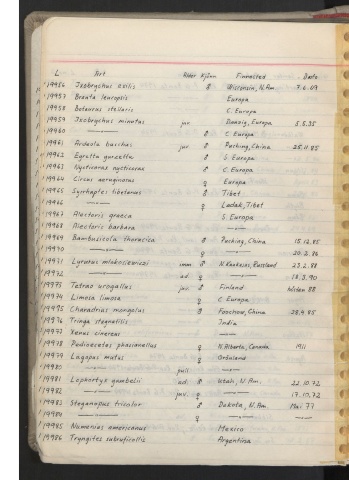 L Art Alder Kjönn Finnested Dato
19956 Ixobrychus exilis ♂ Wisconsin, N.Am. 7.6.09
19957 Branta leucopsis Europa
19958 Botaurus stellaris C. Europa
19959 Ixobrychus minutus juv. Danzig, Europa 5.5.35
19960 —"— ♂ C. Europa
19961 Ardeola bacchus juv. ♂ Peching, China 25.11.85
19962 Egretta garzetta ♂ S. Europa
19963 Nycticorax nycticorax ♂ C. Europa
19964 Circus aeruginosus ♀ Europa
19965 Syrrhaptes tibetanus ♂ Tibet
19966 —"— ♀ Ladak, Tibet
19967 Alectoris graeca S. Europa
19968 Alectoris barbara —"—
19969 Bambusicola thoracica ♂ Peching, China 15.12.85
19970 —"— ♀ —"— 20.2.86
19971 Lyrurus mlokosiewiczi imm. ♂ N. Kaukasus, Russland 23.2.88
19972 —"— ad. ♀ —"— 18.3.90
19973 Tetrao urogallus juv. ♂ Finland hösten 88
19974 Limosa limosa ♀ C. Europa
19975 Charadrius mongolus ♂ Foochow, China 28.4.85
19976 Tringa stagnatilis India
19977 Xenus cinereus —"—
19978 Pedioecetes phasianellus ♀ N. Alberta, Canada 1911
19979 Lagopus mutus ♀ Grönland
19980 —"— pull. —"—
19981 Lophortyx gambelii ad. ♂ Utah, N.Am. 22.10.72
19982 —"— juv. ♀ —"— 17.10.72
19983 Steganopus tricolor ♂ Dakota, N.Am. Mai 77
19984 —"— ♀ —"— —"—
19985 Numenius americanus Mexico
19986 Tryngites subruficollis Argentina